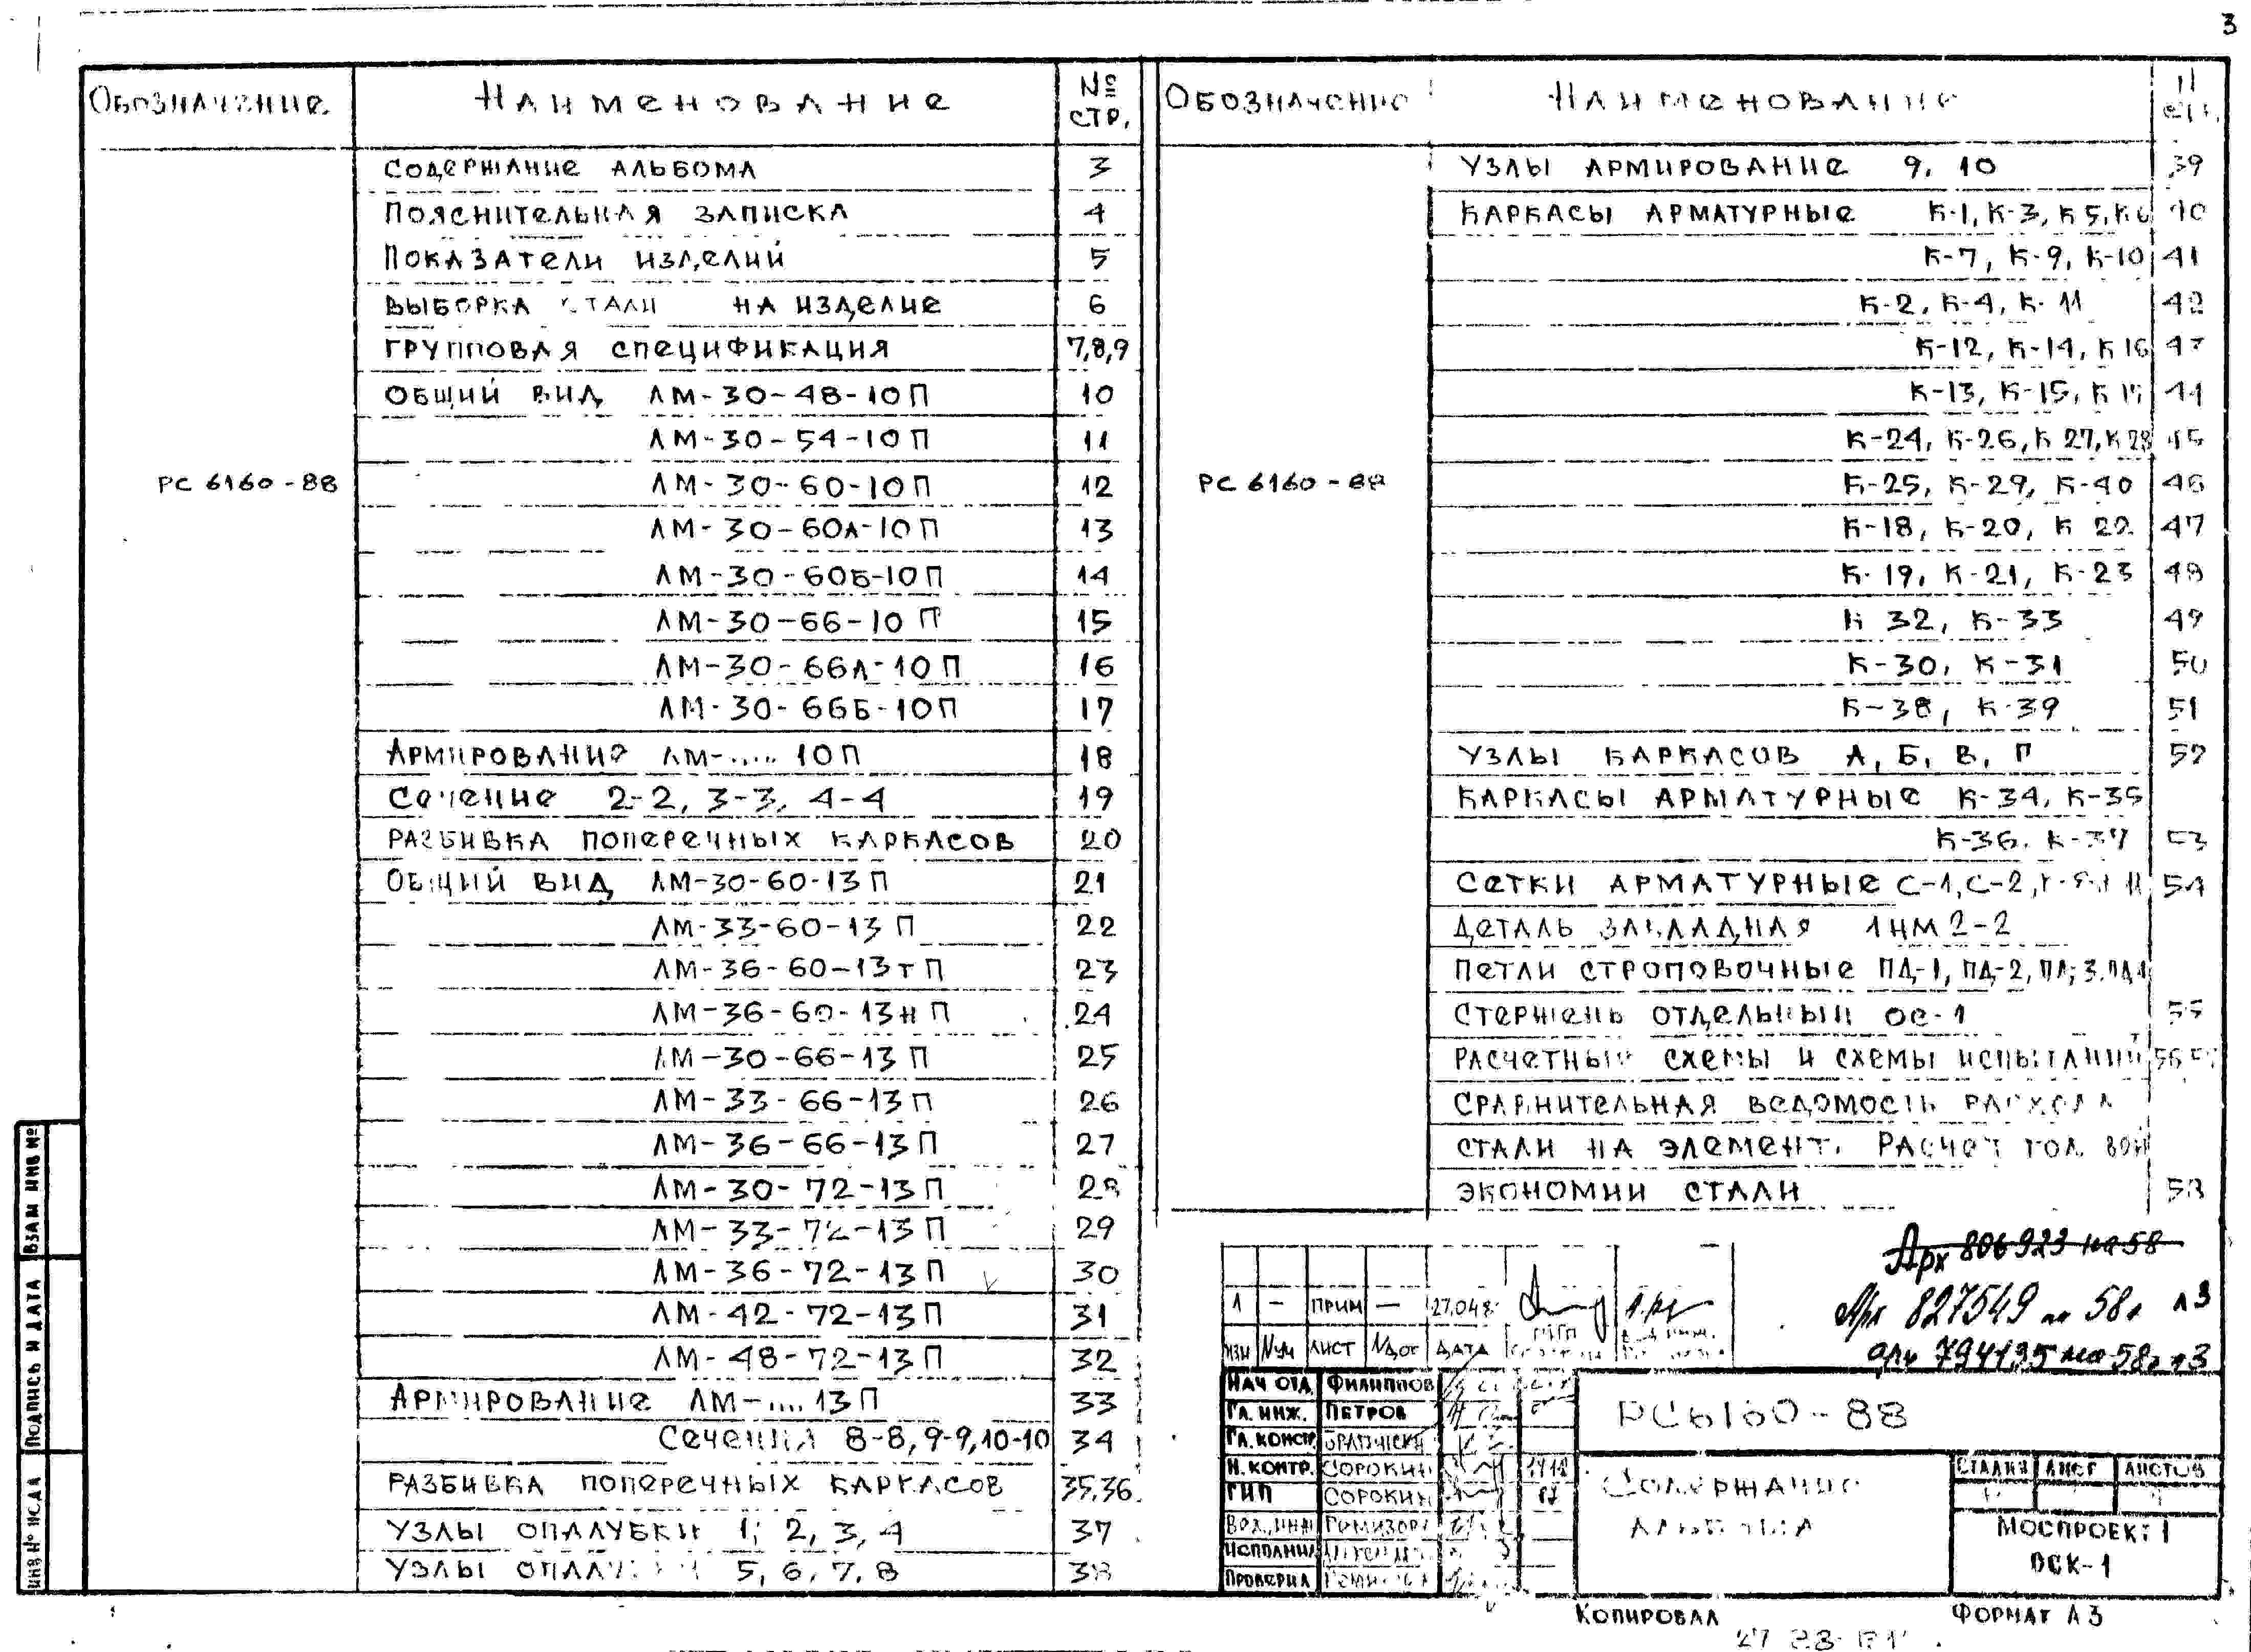 3
Обозначение Наименование № стр.
Содержание альбома 3
Пояснительная записка 4
Показатели изделий 5
РС 6160-88
Выборка стали на изделие 6
Групповая спецификация 7,8,9
Общий вид ЛМ-30-48-10П 10
ЛМ-30-54-10П 11
ЛМ-30-60-10П 12
ЛМ-30-60А-10П 13
ЛМ-30-60Б-10П 14
ЛМ-30-66-10П 15
ЛМ-30-66А-10П 16
ЛМ-30-66Б-10П 17
Армирование ЛМ-.....10П 18
Сечение 2-2, 3-3, 4-4 19
Разбивка поперечных каркасов 20
Общий вид ЛМ-30-60-13П 21
ЛМ-33-60-13П 22
ЛМ-36-60-13тП 23
ЛМ-36-60-13нП 24
ЛМ-30-66-13П 25
ЛМ-33-66-13П 26
ЛМ-36-66-13П 27
ЛМ-30-72-13П 28
ЛМ-33-72-13П 29
ЛМ-36-72-13П 30
ЛМ-42-72-13П 31
ЛМ-48-72-13П 32
Армирование ЛМ-....13П 33
Сечения 8-8, 9-9, 10-10 34
Разбивка поперечных каркасов 35,36
Узлы опалубки 1, 2, 3, 4 37
Узлы опалубки 5, 6, 7, 8 38
Обозначение Наименование
Узлы армирование 9, 10 39
Каркасы арматурные К-1, К-3, К5, К6 40
К-7, К-9, К-10 41
К-2, К-4, К-11 42
К-12, К-14, К16 43
К-13, К-15, К 44
К-24, К-26, К27, К28 45
РС 6160-88
К-25, К-29, К-40 46
К-18, К-20, К 22 47
К-19, К-21, К-23 48
К 32, К-33 49
К-30, К-31 50
К-38, К-39 51
Узлы каркасов А, Б, В, Г 52
Каркасы арматурные К-34, К-35
К-36, К-37 53
Сетки арматурные С-1, С-2, 54
Деталь закладная 1НМ2-2
Петли строповочные ПД-1, ПД-2, ПД-3, ПД4
Стержень отдельный ОС-1 55
Расчетные схемы и схемы испытаний 56
Сравнительная ведомость расхода
стали на элемент. Расчет
экономии стали 58
Арх 806923 на 58
Арх 827549 на 58л л3
Арх 794135 на 58л л3
1 — прим — 27.04.8
изм №уч лист №док дата
Нач отд. Филиппов
Гл. инж. Петров
Гл. констр.
Н. контр. Сорокин
ГИП Сорокин
Вед. инж. Ремизова
Исполнил
Проверил
РС6160-88
Содержание
альбома
Стадия Лист Листов
Моспроект 1
ОСК-1
Копировал Формат А3
Взам инв №
Подпись и дата
Инв № ИСАА